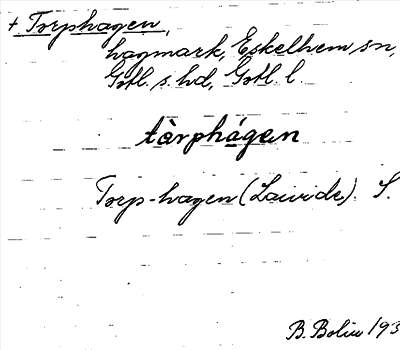 + Torphagen,
hagmark, Eskelhem sn,
Gotl. s. hd, Gotl. l.
tàrphágen
Torp-hagen (Lauride). S.
B. Bolin 193